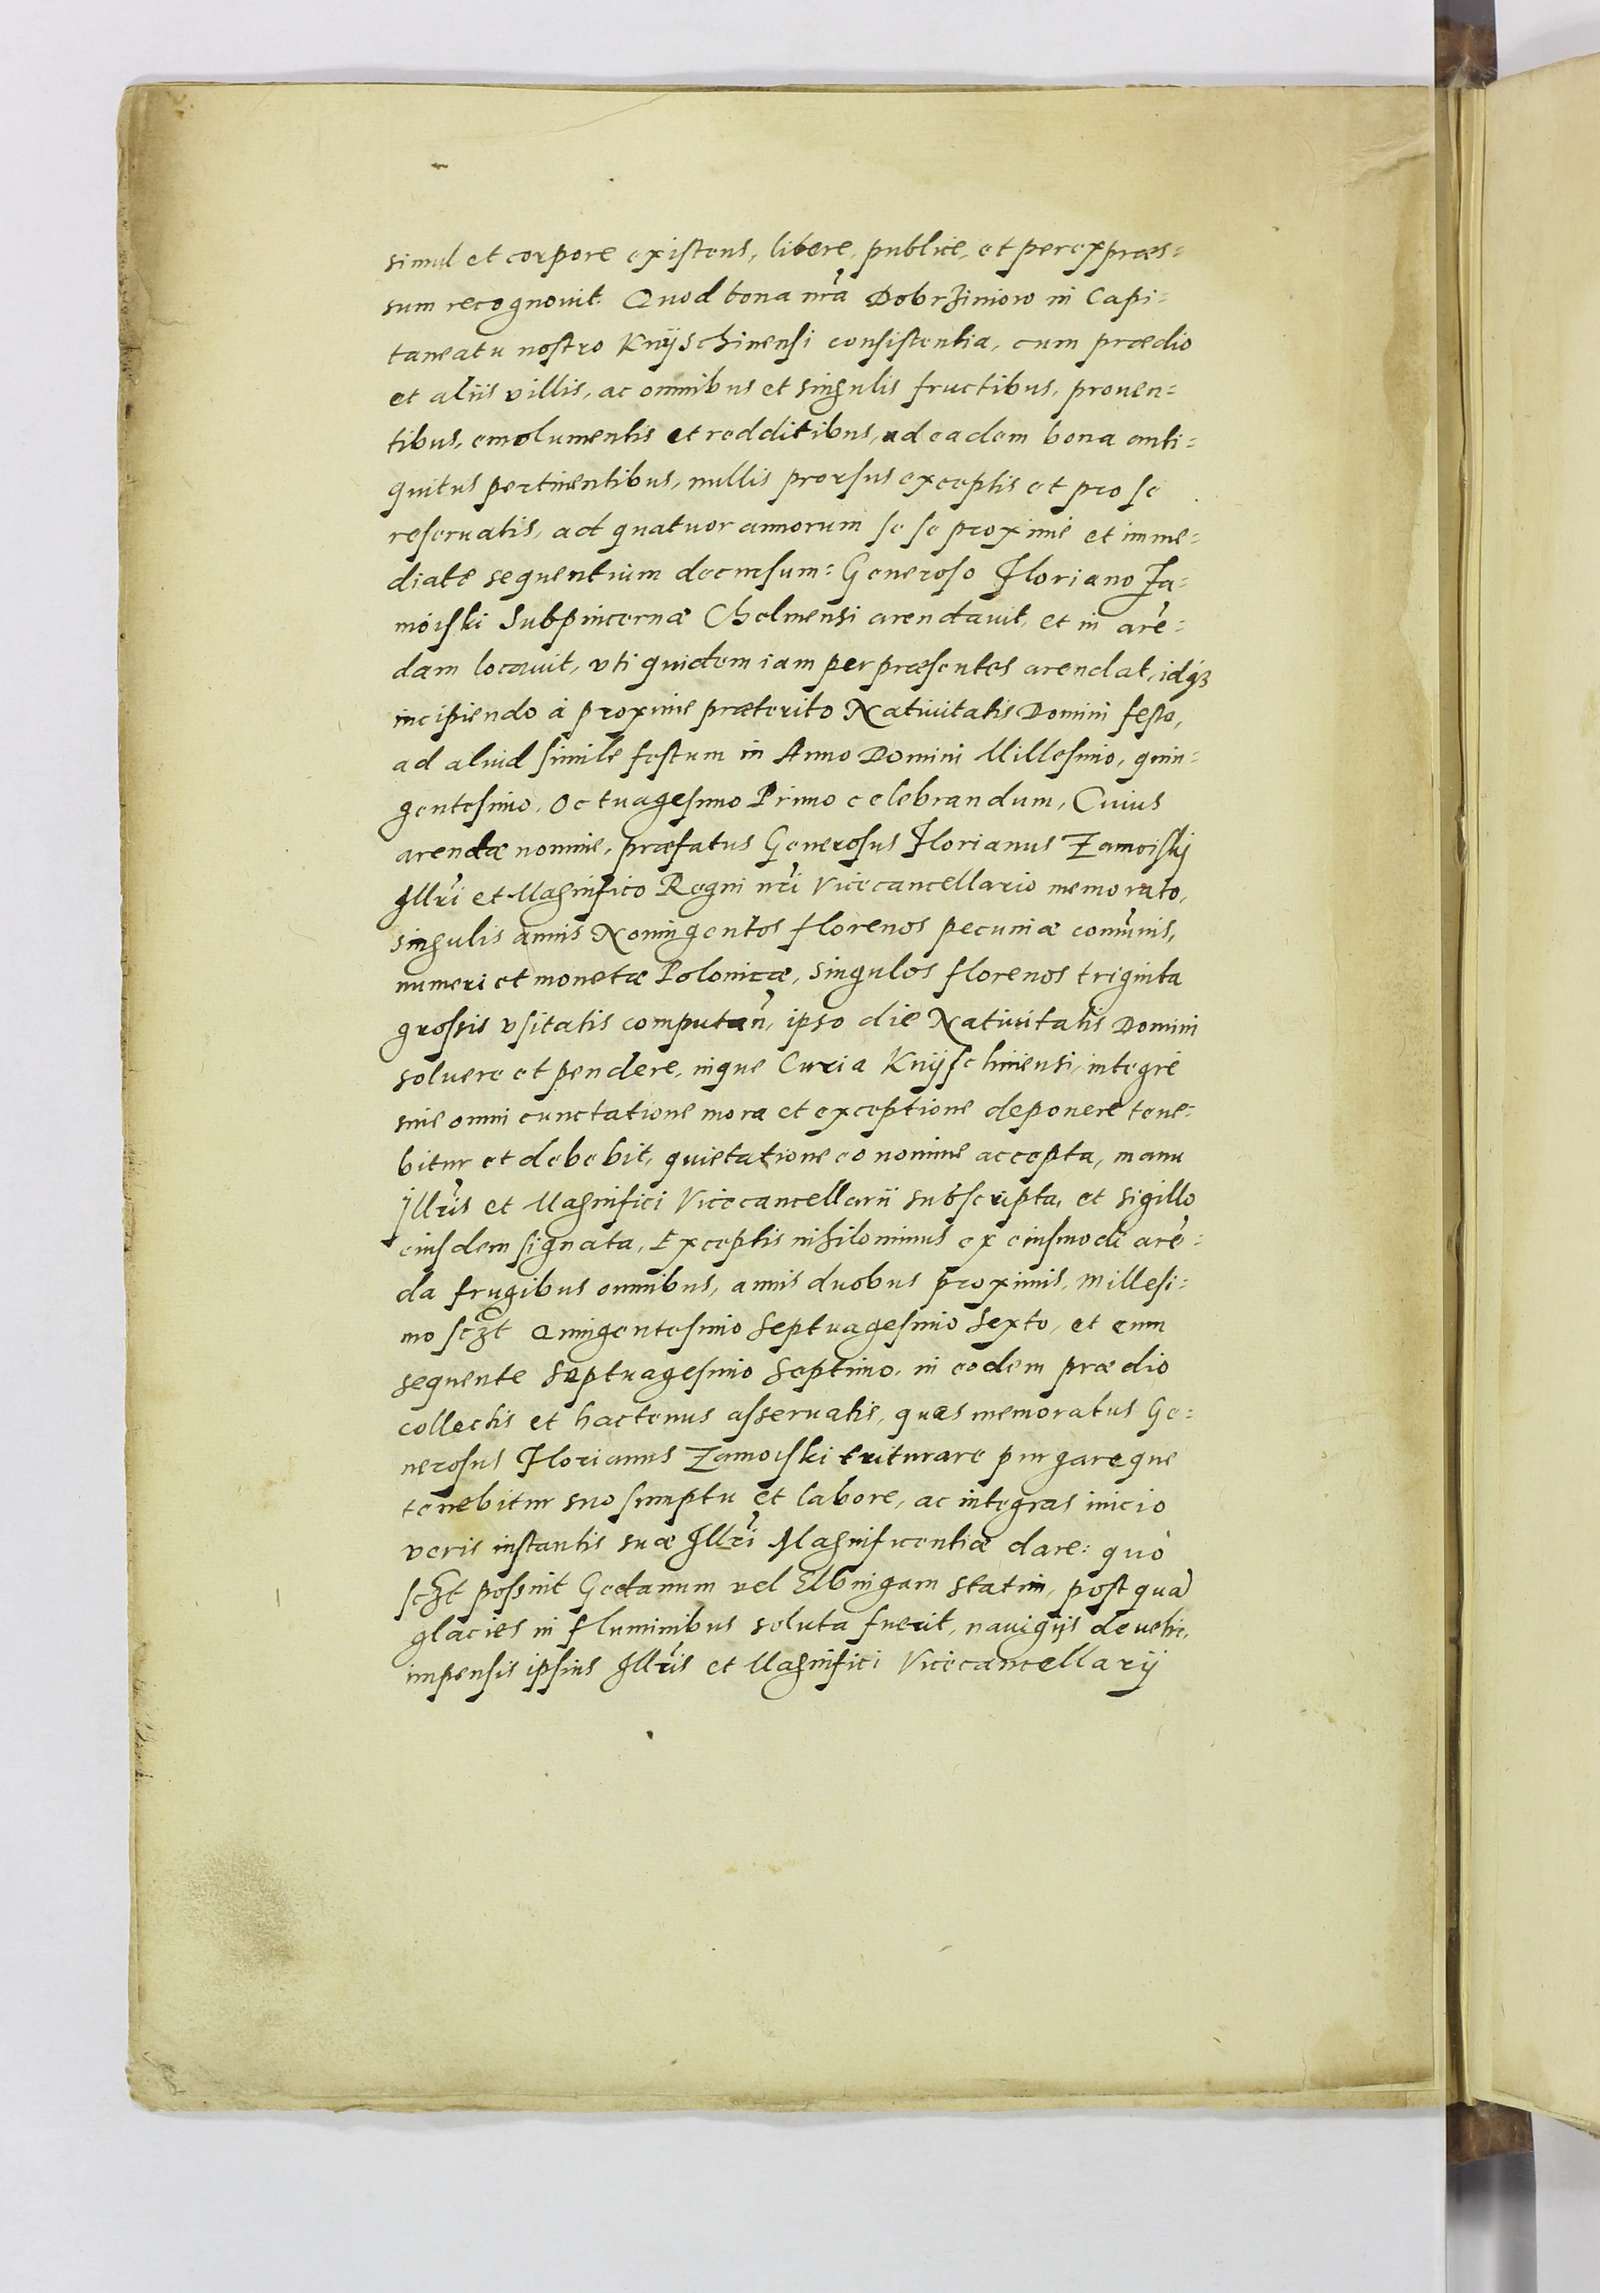 simul et corpore existens, libere, publice, et per expræs=
sum recognouit. Quod bona nr̃a Dobrziniow in Capi=
taneatu nostro Knÿschinensi consistentia, cum prædio
et aliis villis, ac omnibus et singulis fructibus, prouen=
tibus, emolumentis et redditibus, ad eadem bona anti=
quitus pertinentibus, nullis prorsus exceptis et pro se
reseruatis, ad quatuor annorum se se proxime et imme=
diate sequentium decursum: Generoso Floriano Za=
moiski Subpincernæ Chelmensi arendauit, et in arē=
dam locauit, vti quidem iam per præsentes arendat, idq3
incipiendo à proxime præterito Natiuitatis Domini festo,
ad aliud simile festum in Anno Domini Millesimo, quin=
gentesimo, Octuagesimo Primo celebrandum, Cuius
arendæ nomine, præfatus Generosus Florianus Zamoiskij
Illr̃i et Magnifico Regni nr̃i Vicecancellario memorato,
singulis annis Noningentos florenos pecuniæ com̃unis,
numeri et monetæ Polonicæ, singulos florenos triginta
grossis vsitatis computan̄, ipso die Natiuitatis Domini
soluere et pendere, inque Curia Knijschinensi, integrè
sine omni cunctatione mora et exceptione deponere tene=
bitur et debebit, quietatione eo nomine accepta, manu
Illr̃is et Magnifici Vicecancellarii subscripta, et sigillo
eiusdem signata, Exceptis nihilominus ex eiusmodi arē=
da frugibus omnibus, annis duobus proximis, millesi=
mo sc3t Quingentesimo Septuagesimo Sexto, et eum
sequente Septuagesimo Septimo, in eodem prædio
collectis et hactenus asseruatis, quas memoratus Ge=
nerosus Florianus Zamoiski triturare purgareque
tenebitur suo sumptu et labore, ac integras inicio
veris instantis suæ Illr̃i Magnificentiæ dare: quò
sc3t possint Gedanum vel Elbingam statim, postquā
glacies in fluminibus soluta fuerit, nauigijs deuehi,
impensis ipsius Illr̃is et Magnifici Vicecancellarij